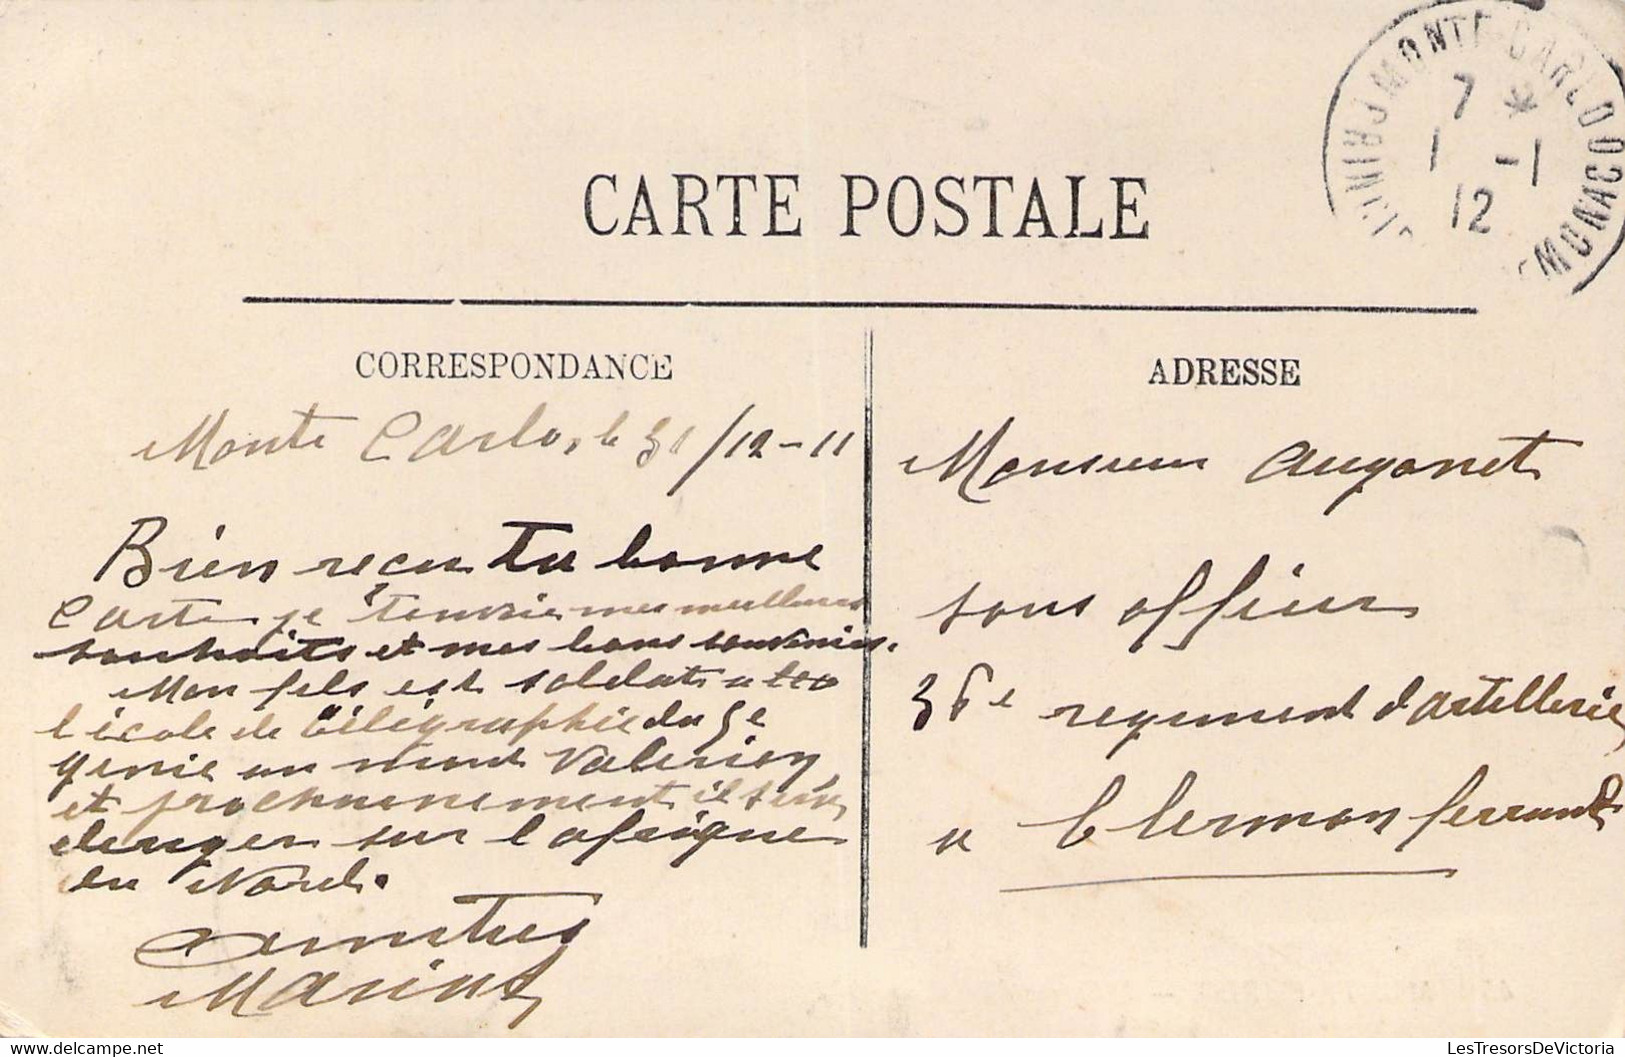 CARTE POSTALE
MONTE-CARLO
7 *
1 -1
12
MONACO
CORRESPONDANCE
Monte Carlo, le 31/12-11
Bien reçu ta bonne
Carte je t'envoie mes meilleurs
souhaits et mes bons souvenirs.
Mon fils est soldat a
l'école de télégraphie du 5e
génie au mont Valerien
et prochainement il sera
diriger sur l'afrique
du Nord.
ADRESSE
Monsieur Auganet
sous officier
36e regiment d'artillerie
a Clermon ferrand
LesTresorsDeVictoria